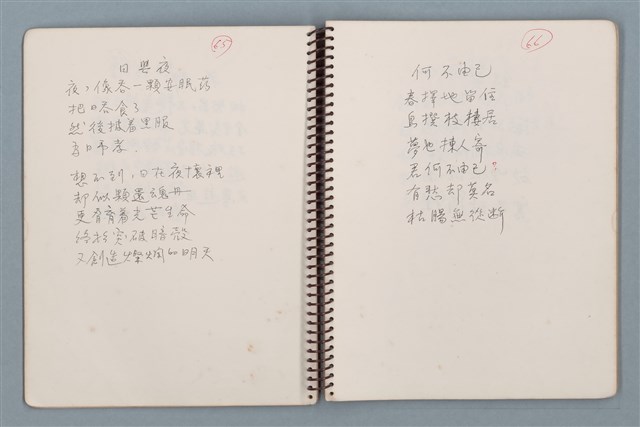 65
日與夜
夜,像吞一顆安眠药
把日吞食了
然後披着黑服
為日帶孝
想不到,日在夜懷裡
却似顆還魂丹
更孕育着光芒生命
終於突破暗殼
又創造燦爛的明天
66
何不由己
春擇地留住
鳥擇枝棲居
夢也揀人寄
君何不由己?
有愁却莫名
枯腸無從斷